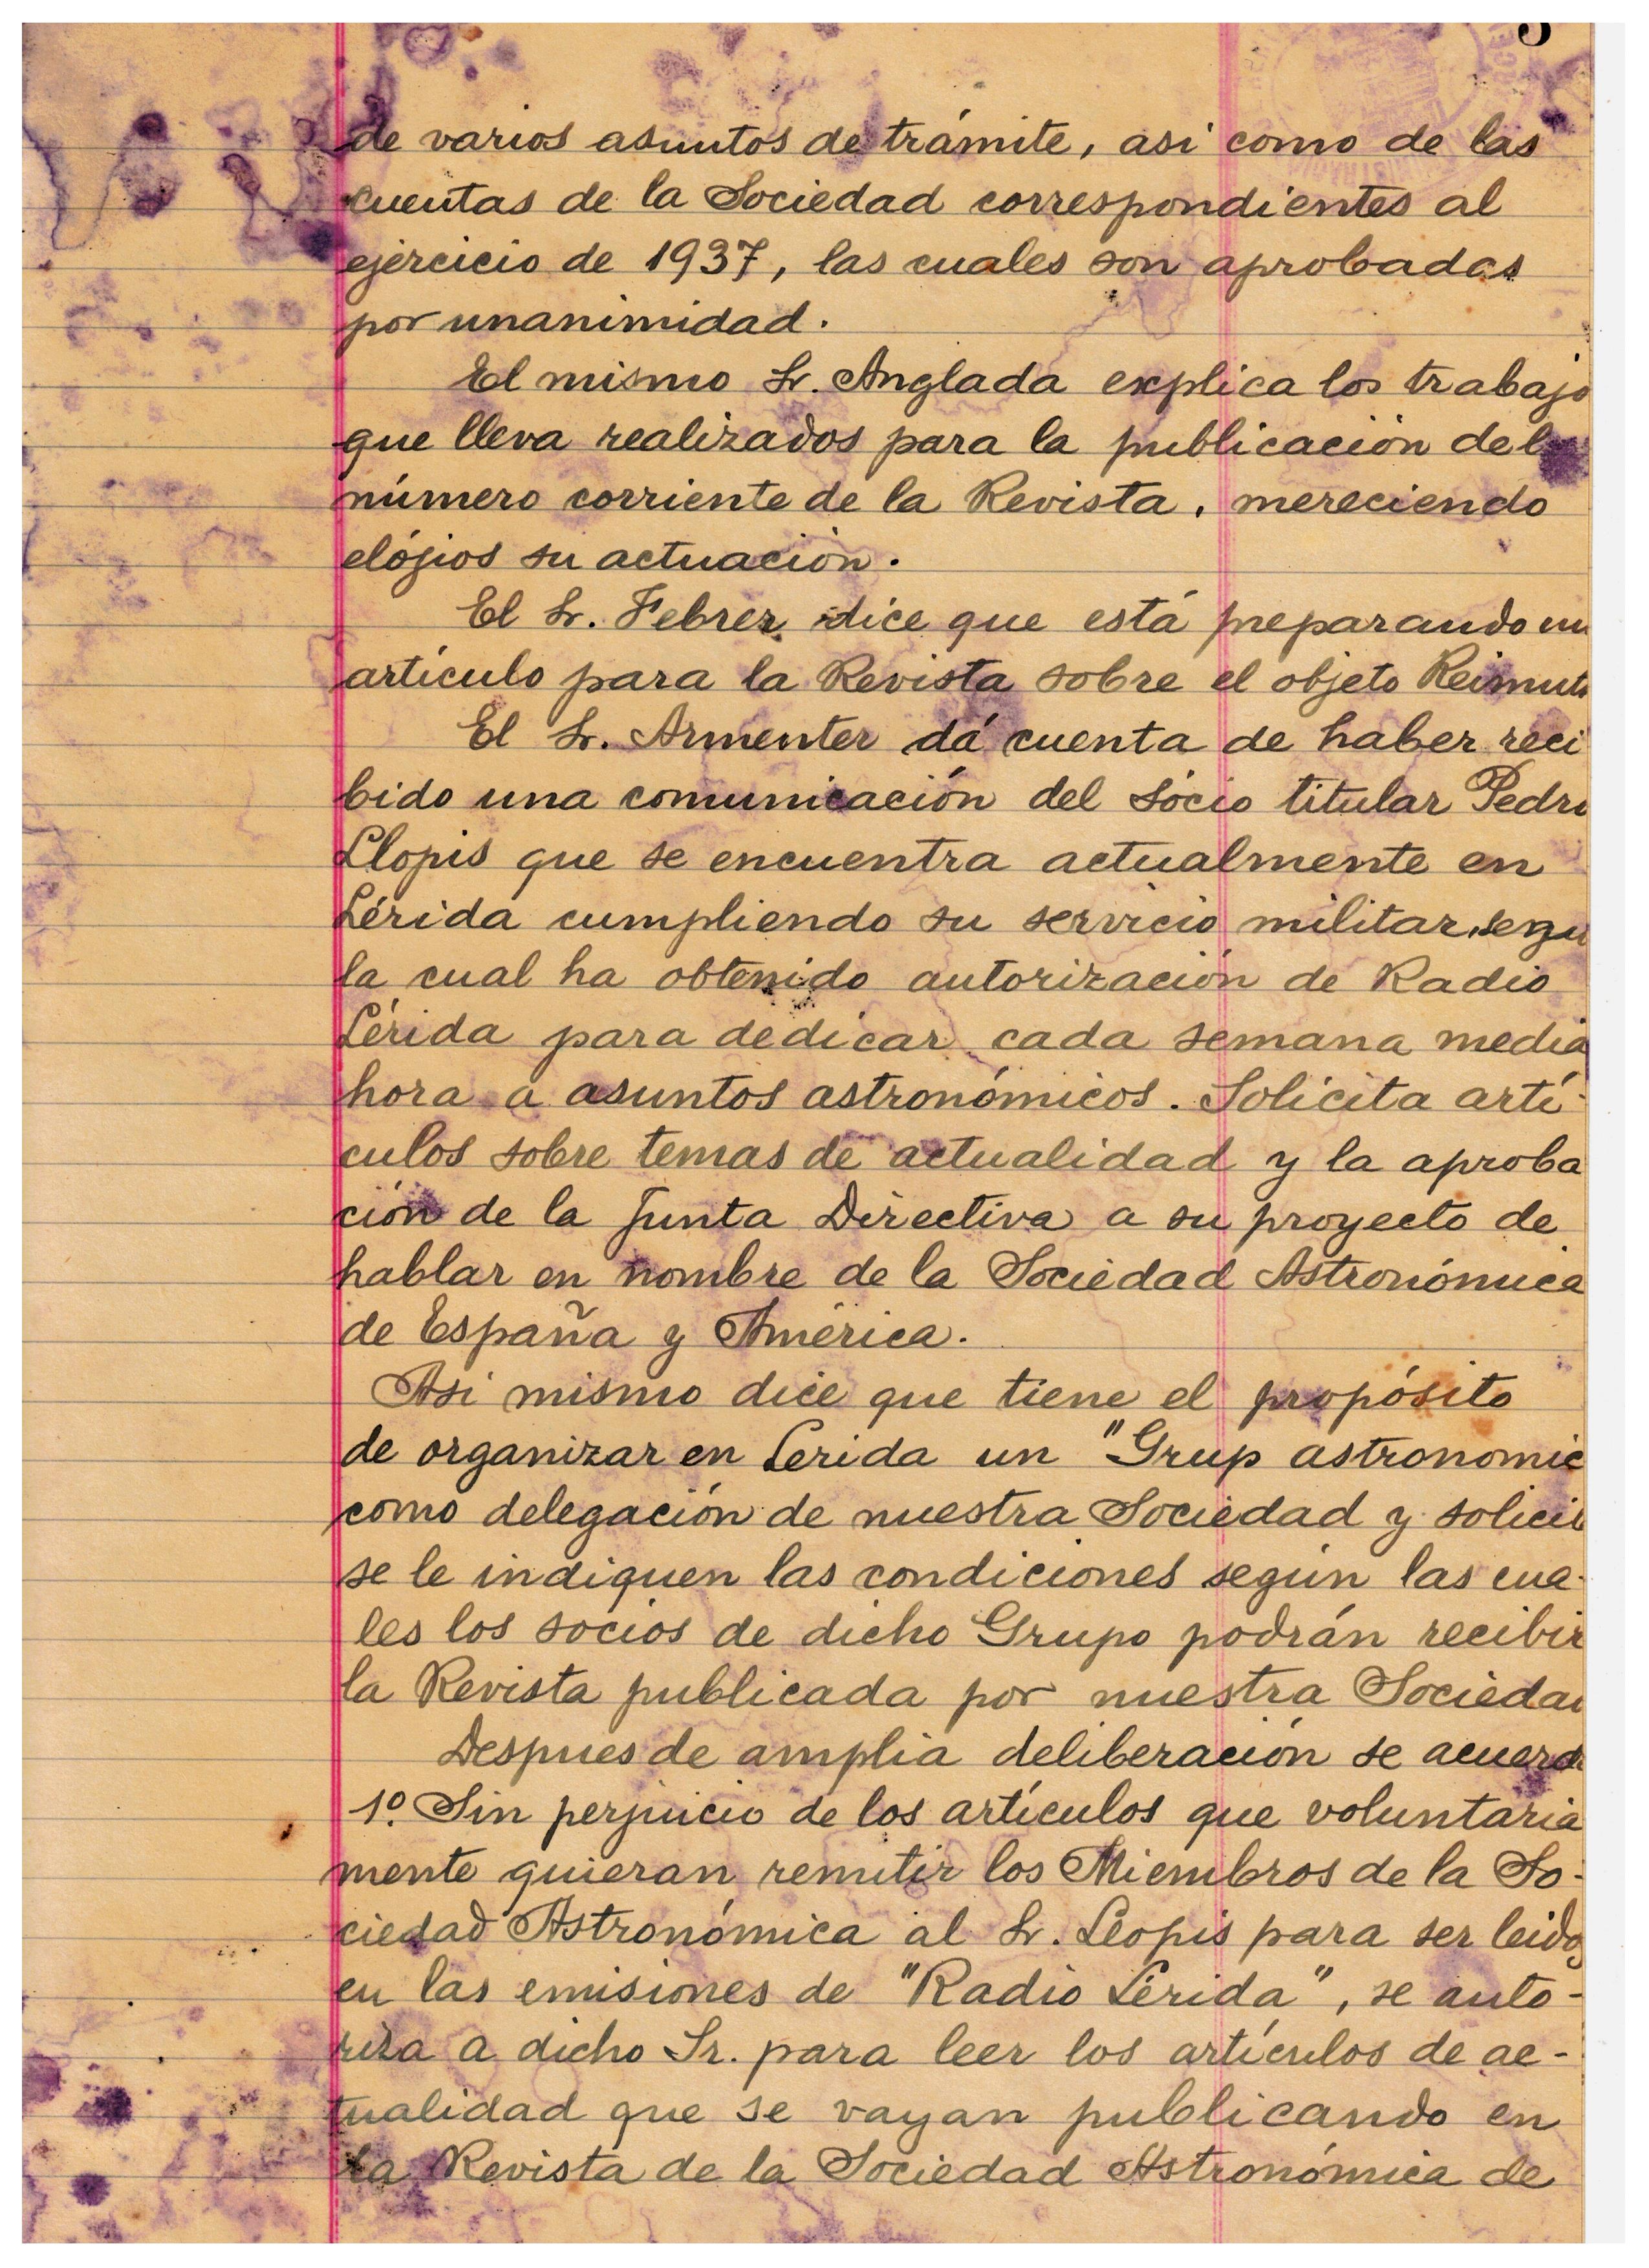 de varios asuntos de trámite, asi como de las
cuentas de la Sociedad correspondientes al
ejercicio de 1937, las cuales son aprobadas
por unanimidad.
El mismo Sr. Anglada explica los trabajo
que lleva realizados para la publicación del
número corriente de la Revista, mereciendo
elógios su actuación.
El Sr. Febrer dice que está preparando un
artículo para la Revista sobre el objeto Reimut
El Sr. Armenter dá cuenta de haber reci
bido una comunicación del sócio titular Pedro
Llopis que se encuentra actualmente en
Lérida cumpliendo su servicio militar, segu
la cual ha obtenido autorización de Radio
Lérida para dedicar cada semana media
hora a asuntos astronómicos. Solicita artí-
culos sobre temas de actualidad y la aproba
ción de la Junta Directiva a su proyecto de
hablar en nombre de la Sociedad Astronómica
de España y América.
Asi mismo dice que tiene el propósito
de organizar en Lerida un "Grup astronomic
como delegación de nuestra Sociedad y solicit
se le indiquen las condiciones según las cua-
les los socios de dicho Grupo podrán recibir
la Revista publicada por nuestra Sociedad
Despues de amplia deliberación se acuerda
1º. Sin perjuicio de los artículos que voluntaria
mente quieran remitir los Miembros de la So-
ciedad Astronómica al Sr. Llopis para ser leidos
en las emisiones de "Radio Lérida", se auto-
riza a dicho Sr. para leer los artículos de ac-
tualidad que se vayan publicando en
la Revista de la Sociedad Astronómica de